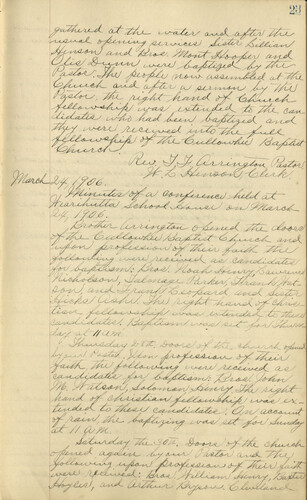 23
gathered at the water and after the
usual opening services Sister Lillian
Henson and Bros. Mont Hooper and
Otis Dunn were baptized by the
Pastor. The people now assembled at the
Church and after a sermon by the
Pastor, the right hand of Church
fellowship was extended to the can-
didates who had been baptized and
they were received into the full
fellowship of the Cullowhee Baptist
Church.
Rev. T. F. Arrington Pastor
W. C. Henson, Clerk
March 24, 1906.
Minutes of a conference held at
School house on March
24, 1906.
Brother Arrington opened the doors
of the Cullowhee Baptist Church and
upon profession of their faith the
following were received as candidates
for baptism: Bros. Noah Henry, Lawrence
Nicholson, Talmage Parker, Frank Wat-
son, and and Sister
The right hand of chris-
tian fellowship was extended to these
candidates. Baptism was set for Thurs-
day at 11 a.m.
Thursday Doors of the church opened
by our Pastor. Upon profession of their
faith the following were received as
candidates for baptism: Bros. John
M. Watson, Solomon Henry. The right
hand of christian fellowship was ex-
tended to these candidates. On account
of rain the baptizing was set for Sunday
at 11 A.M.
Saturday the 30th, Doors of the church
opened again by our Pastor and the
following upon profession of their faith
were received: Bros. William Henry,
and Arthur